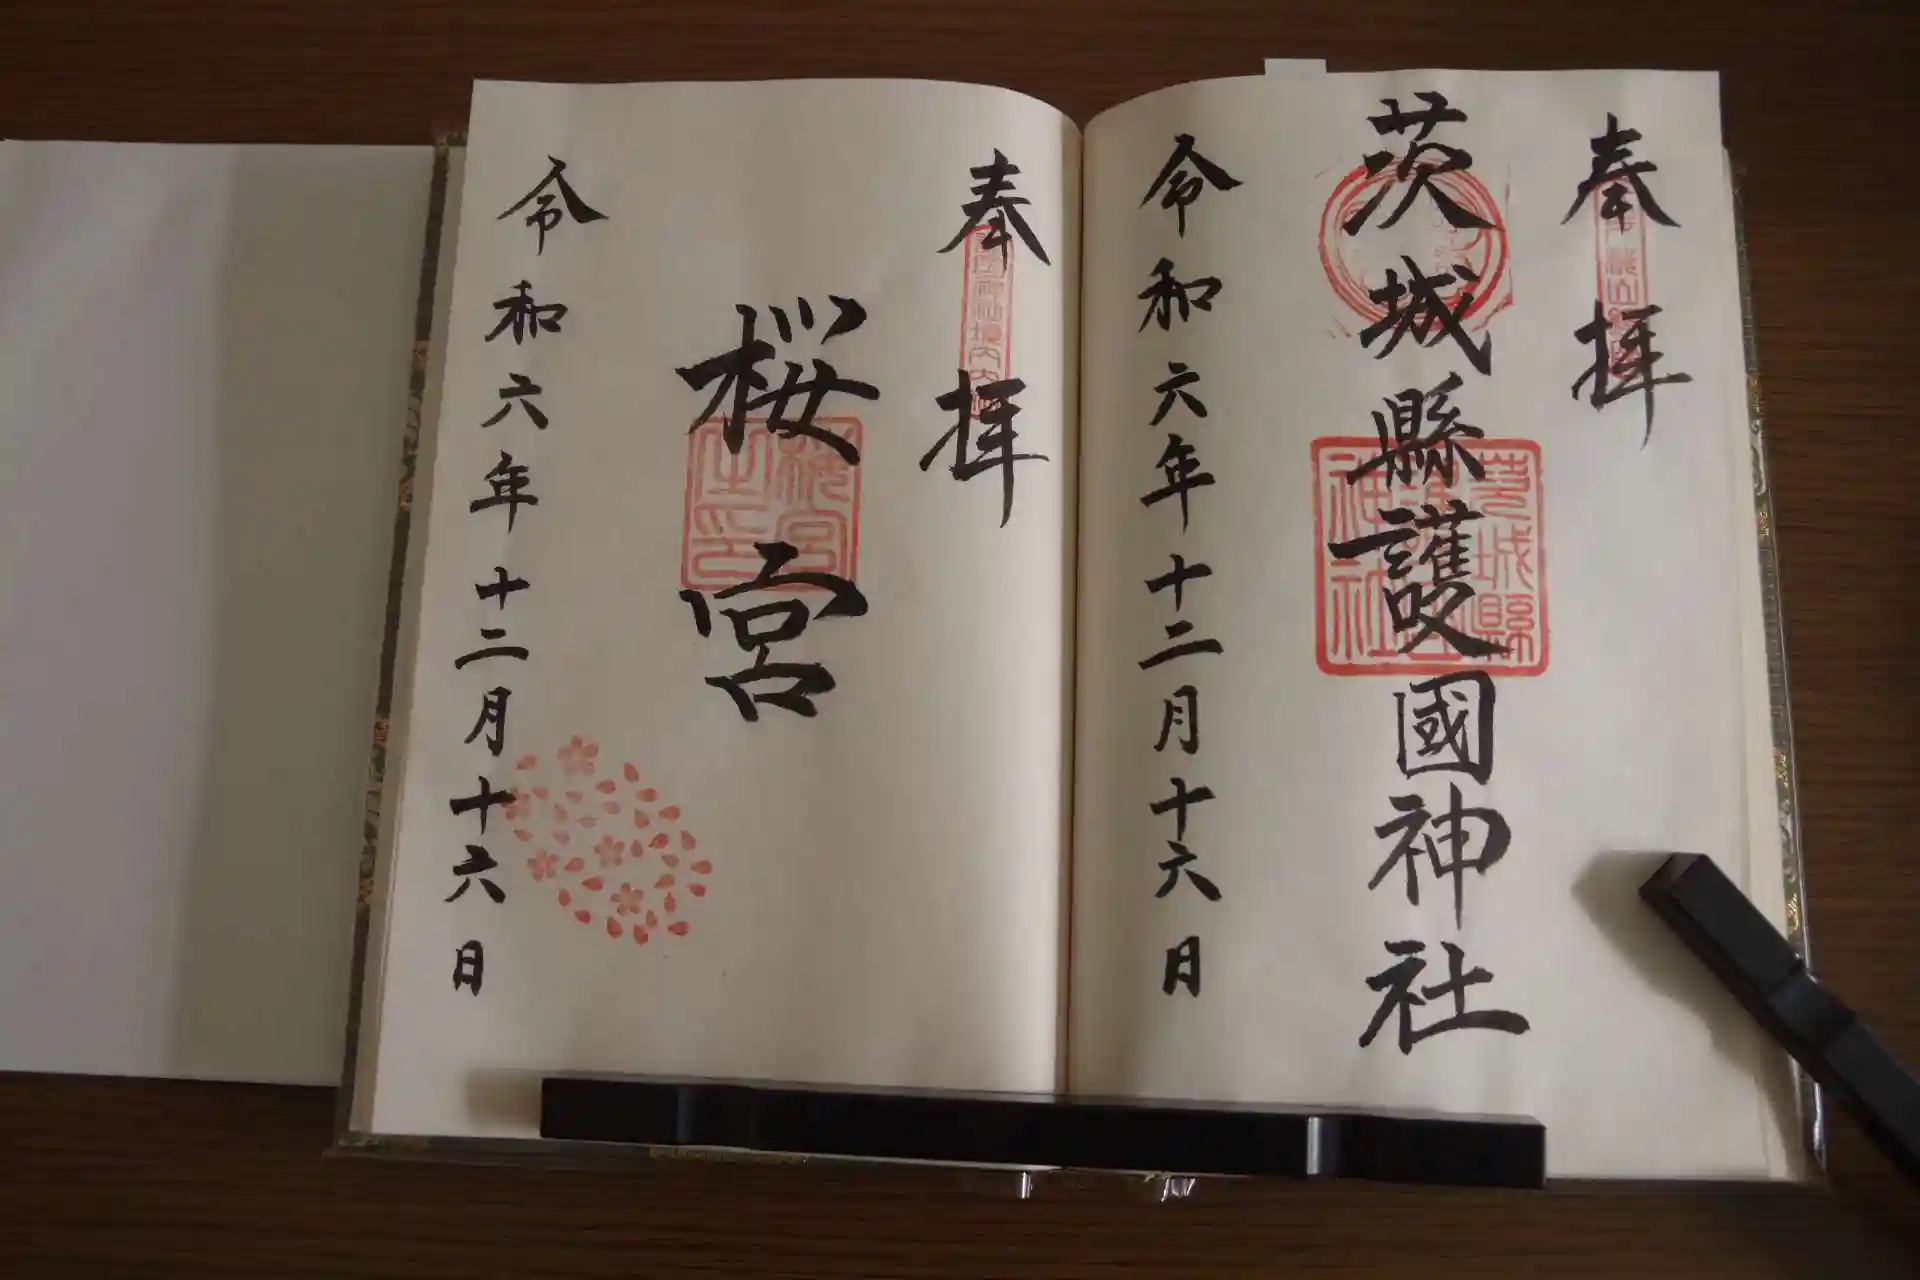 奉拝
茨城縣護國神社
茨城縣
神社
令和六年十二月十六日
奉拝
桜宮
桜宮
之印
令和六年十二月十六日